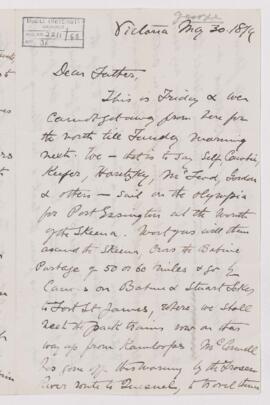 McGILL UNIVERSITY
ACC. NO. 2211
Victoria May 30. 1879
Dear Father,
This is Friday & we
cannot get away from here for
the north till Tuesday morning
next. We — that is to say Self, Cambie,
Keefer, Horetzky, McLeod, Gordon
& others — sail on the Olympia
for Port Essington at the mouth
of the Skeena. We go up
the Skeena, cross the Babine
Portage of 50 or 60 miles & go by
Canoes on Babine & Stuart Lakes
to Fort St James, where we shall
meet the pack trains now on their
way up from Kamloops. McConnell
has gone off this morning by the Fraser
River route to Quesnelle to travel